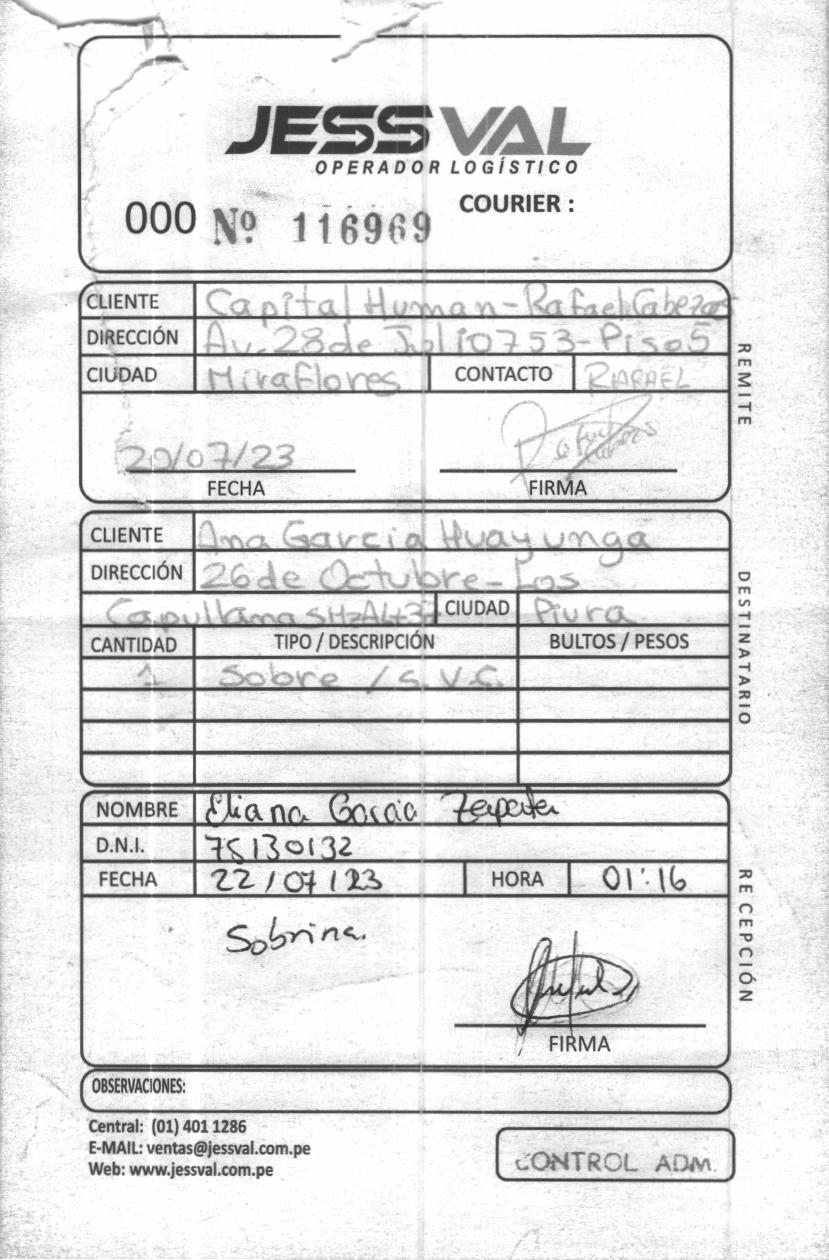 JESSVAL
OPERADOR LOGÍSTICO
COURIER :
000 Nº 116969
CLIENTE Capital Human-Rafael Cabezas
DIRECCIÓN Av. 28 de Julio 753-Piso 5
CIUDAD Miraflores CONTACTO RAFAEL
REMITE
20/07/23
FECHA FIRMA
CLIENTE Ana Garcia Huayunga
DIRECCIÓN 26 de Octubre-Los
Capullana CIUDAD Piura
DESTINATARIO
CANTIDAD TIPO / DESCRIPCIÓN BULTOS / PESOS
1 Sobre / S.V.C.
NOMBRE Eliana Garcia Zapata
D.N.I. 75130132
FECHA 22/07/23 HORA 01:16
RECEPCIÓN
Sobrina.
FIRMA
OBSERVACIONES:
Central: (01) 401 1286
E-MAIL: ventas@jessval.com.pe
Web: www.jessval.com.pe
CONTROL ADM.